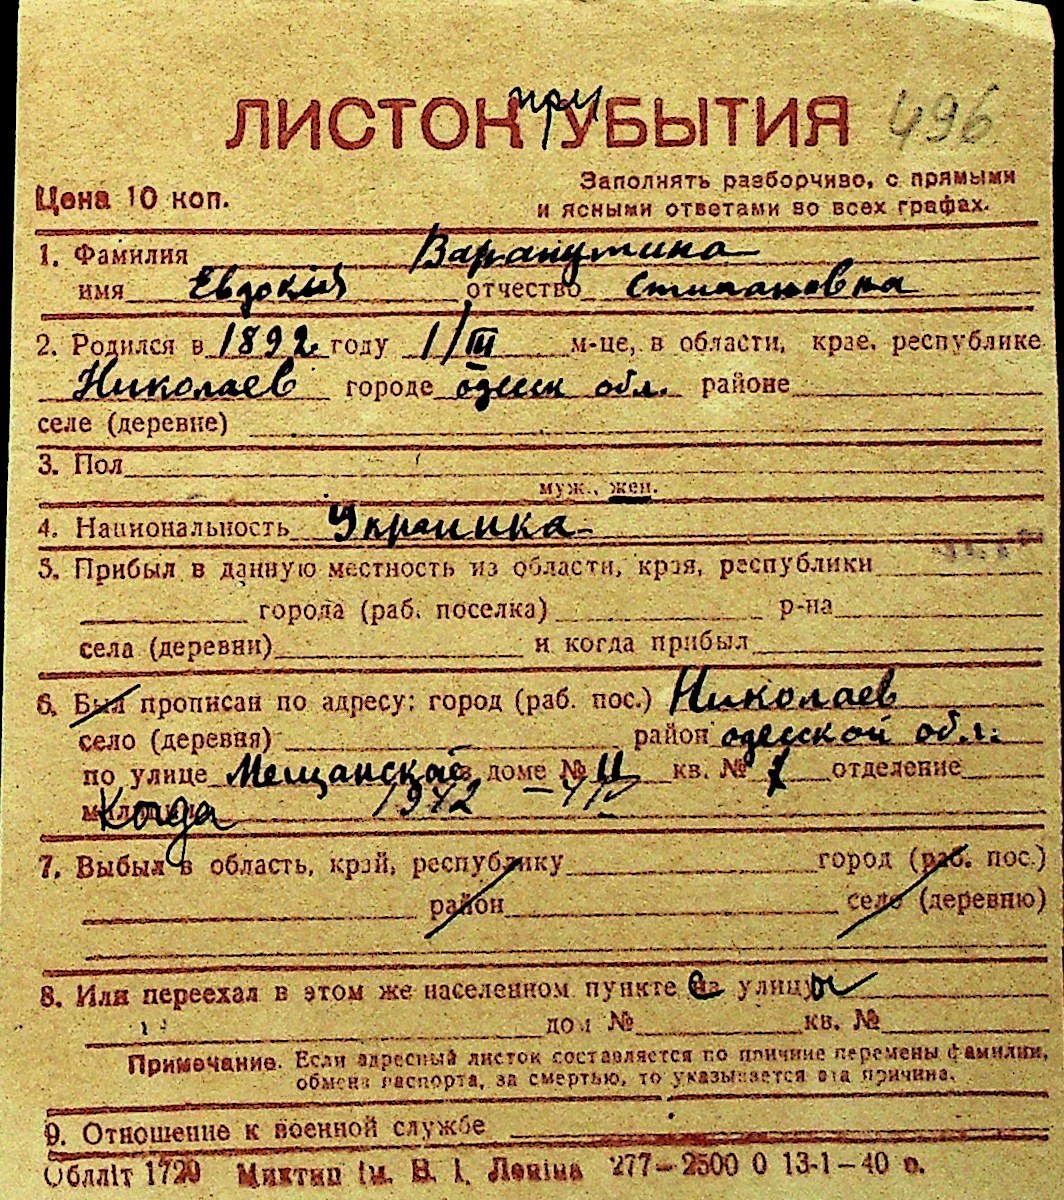 ЛИСТОК при УБЫТИЯ 496
Цена 10 коп.
Заполнять разборчиво, с прямыми
и ясными ответами во всех графах.
1. Фамилия Варапутина
имя Евдокия отчество Стипановна
2. Родился в 1892 году 1/III м-це, в области, крае, республике
Николаев городе одесск обл. районе
селе (деревне)
3. Пол
муж., жен.
4. Национальность Украинка
5. Прибыл в данную местность из области, края, республики
города (раб. поселка) р-на
села (деревни) и когда прибыл
6. Был прописан по адресу: город (раб. пос.) Николаев
село (деревня) район одесской обл.
по улице Мещанской в доме № 11 кв. № 1 отделение
милиции Когда 1942
7. Выбыл в область, край, республику город (раб. пос.)
район село (деревню)
8. Или переехал в этом же населенном пункте с улицы
дом № кв. №
Примечание. Если адресный листок составляется по причине перемены фамилии,
обмена паспорта, за смертью, то указывается эта причина.
9. Отношение к военной службе
Облліт 1720 Миктип ім. В. І. Леніна 277—2500 0 13-1—40 р.